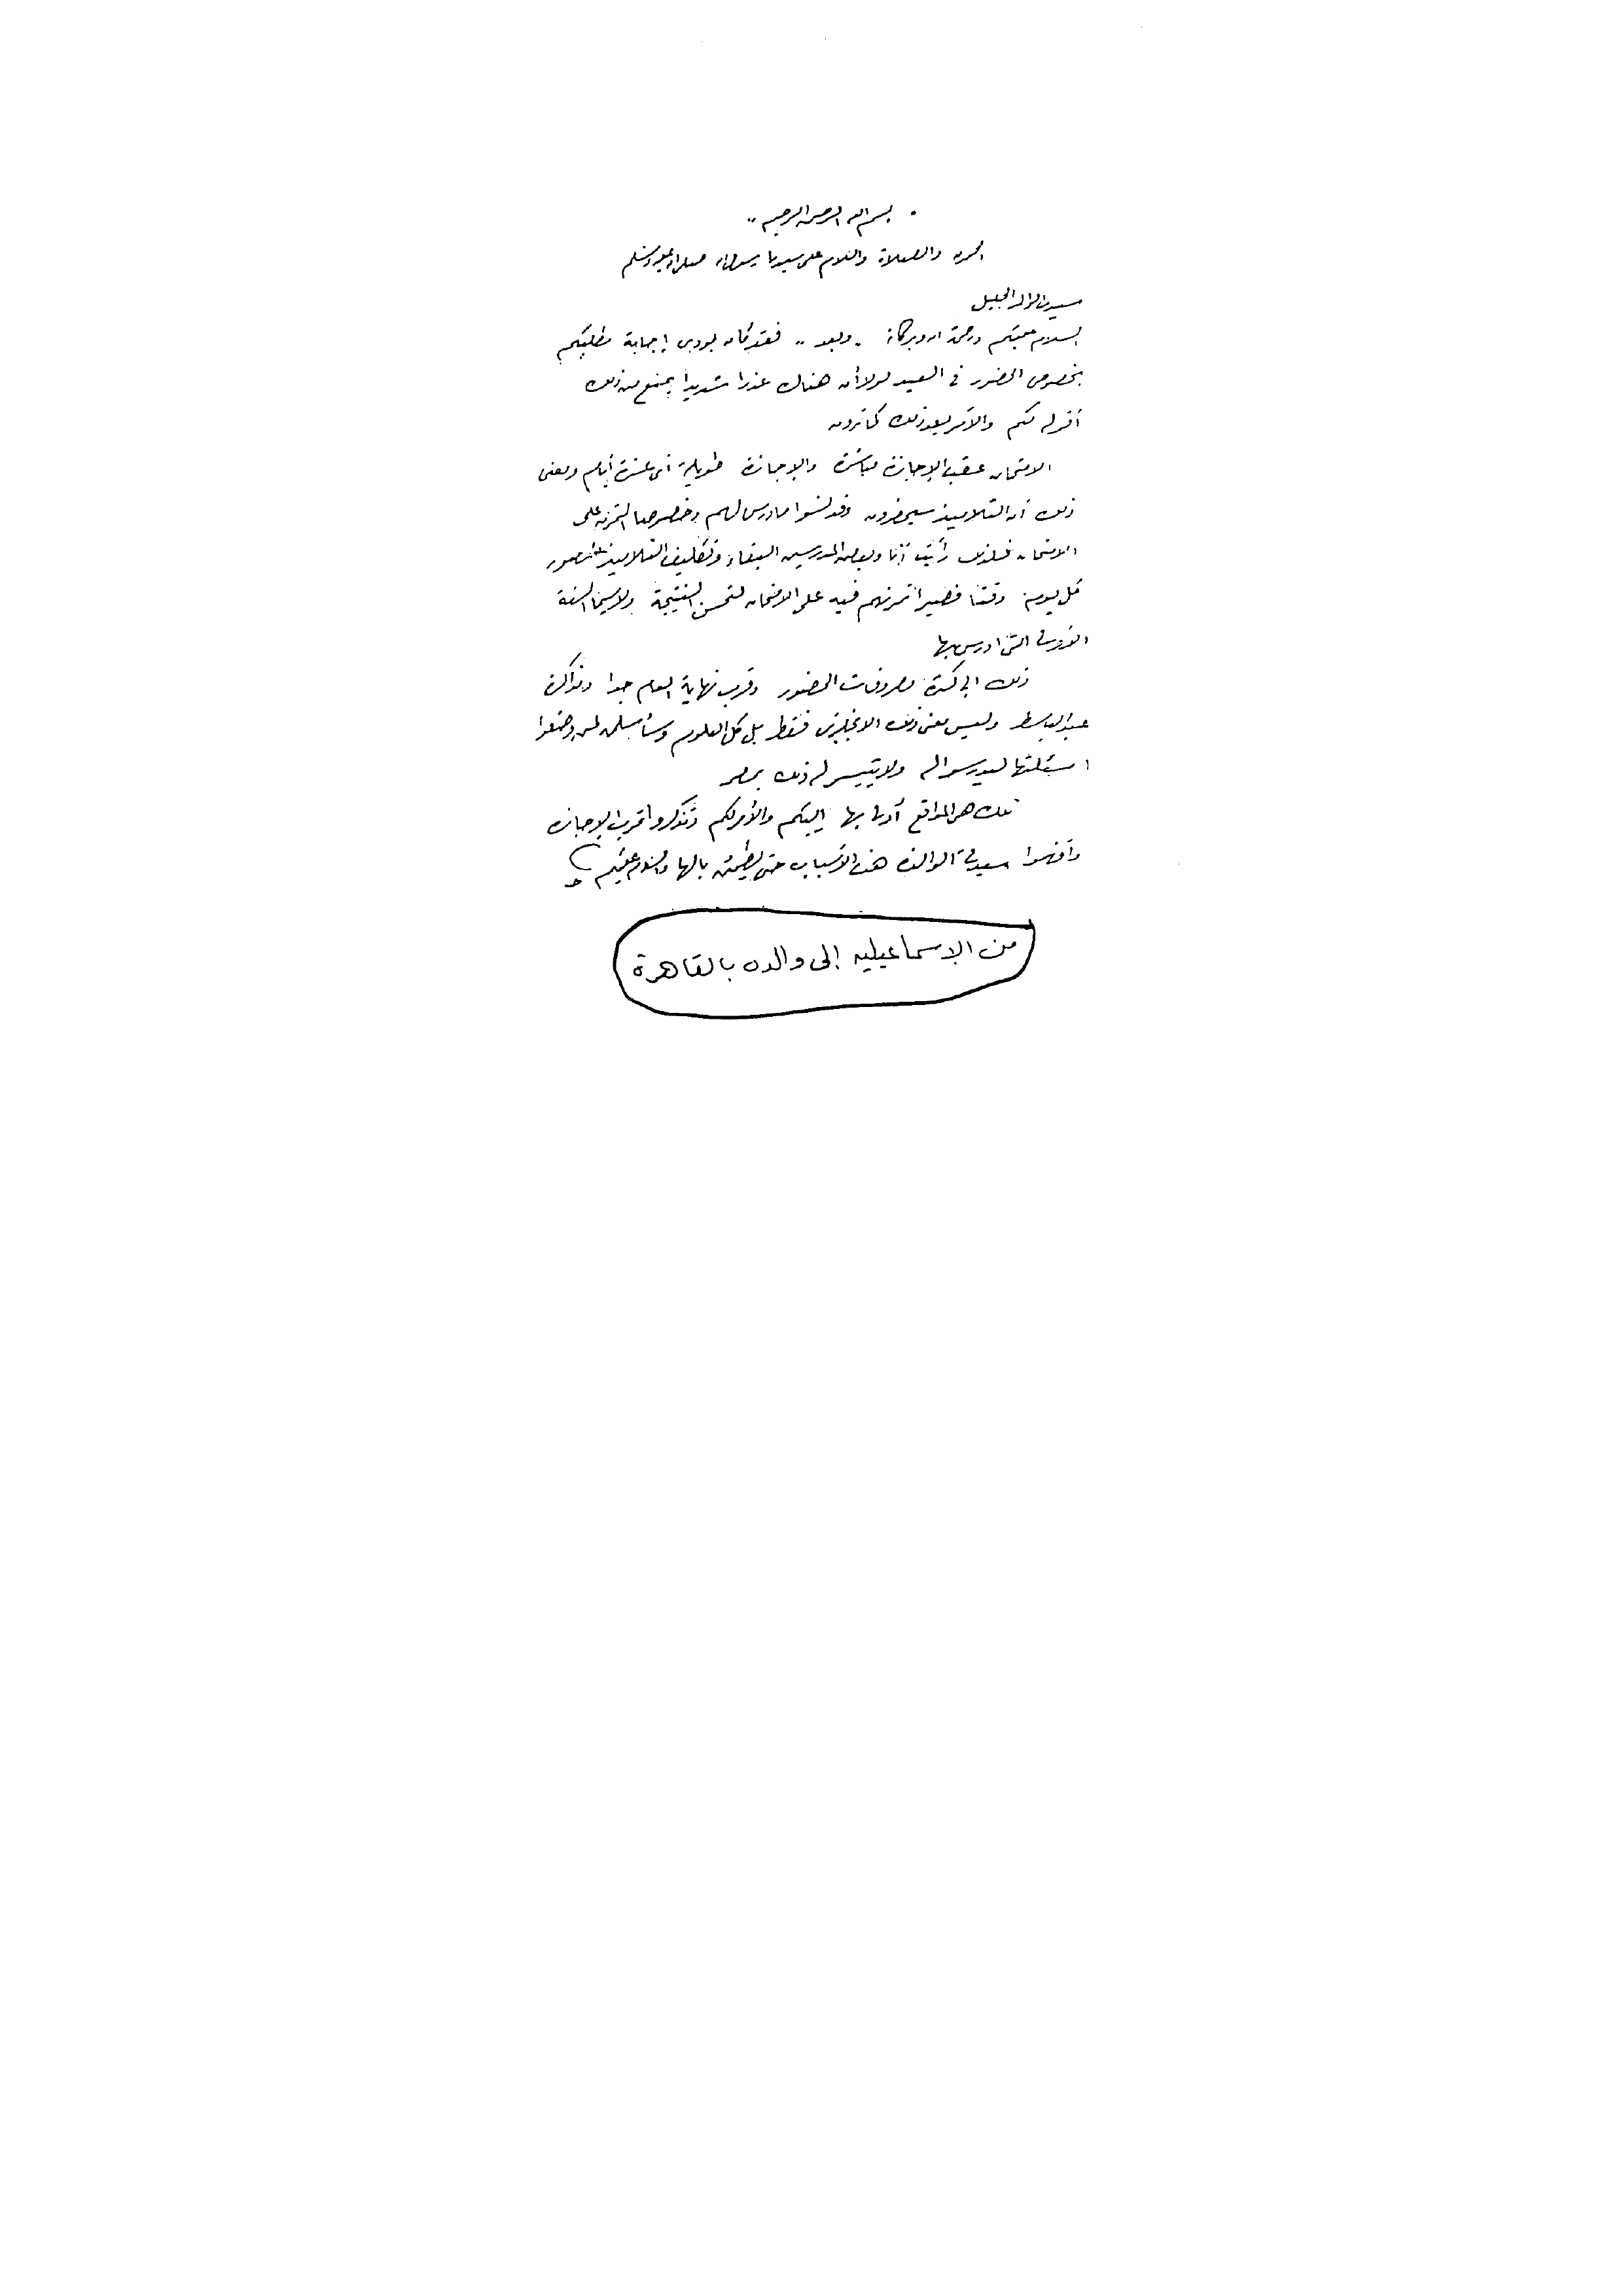 بسم الله الرحمن الرحيم ..
الحمد لله والصلاة والسلام على سيدنا رسول الله صلى الله عليه وسلم
سيدي الوالد الجليل
السلام عليكم ورحمة الله وبركاته . وبعد .. فقد كان بودى إجابة مطلبكم
بخصوص الحضور فى العيد لولا أن هناك عذرا شديدا يمنع من ذلك
أقوله لكم والأمر بعد ذلك كما ترون
الامتحان عقب الإجازة مباشرة والإجازة طويلة أى عشرة أيام ومعنى
ذلك أن التلاميذ سيحضرون وقد نسوا ما درس لهم وخصوصا التمرن على
الامتحان فلذلك رأيت أنا وبعض المدرسين البقاء وتكليف التلاميذ الحضور
كل يوم وقتا قصيرا نمرنهم فيه على الامتحان لتحسن النتيجة ولاسيما السنة
الأولى التى ادرس بها
ذلك الى كثرة مصروفات الحضور وقرب نهاية العام جدا ومذاكرة
عبد الباسط وليس معنى ذلك الانجليزى فقط بل كل العلوم
اسئلتها ولا يتيسر له ذلك بمصر
تلك هى الموانع أدلى بها إليكم والأمر لكم وتذكروا قرب الإجازة
وأفهموا سيدتى الوالدة هذه الأسباب حتى يطمئن بالها والسلام عليكم
من الإسماعيليه إلى والده بالقاهرة